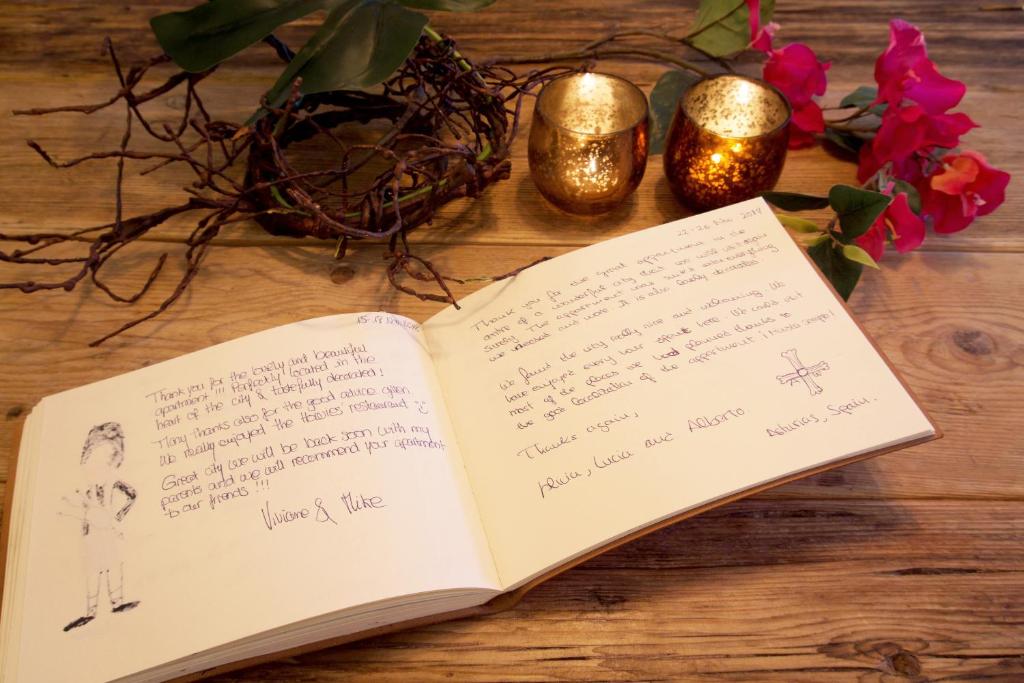 15-18
Thank you for the lovely and beautiful
apartment!!! Perfectly located in the
heart of the city & tastefully decorated!
Many thanks also for the good advice given
We really enjoyed the restaurant :)
Great city we will be back soon with my
parents and we will recommend your apartment
to our friends!!!
Viviane & Mike
22-26
Thank you for the great appartment in the
centre of a wonderful city that we will visit again
surely. The appartment was suited with everything
we needed and more. It is also lovely decorated.
We found the city really nice and welcoming. We
have enjoyed every hour spent here. We could visit
most of the places we had planned thanks to
the good location of the appartment!
Thanks again,
Lucía and Alberto.
Asturias, Spain.